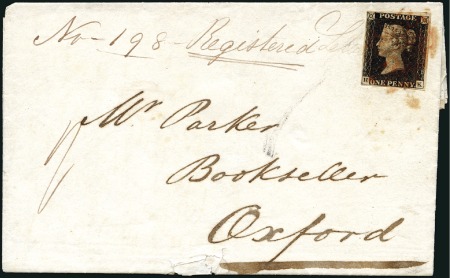 No - 198 - Registered
POSTAGE
ONE PENNY
Mr Parker
Bookseller
Oxford